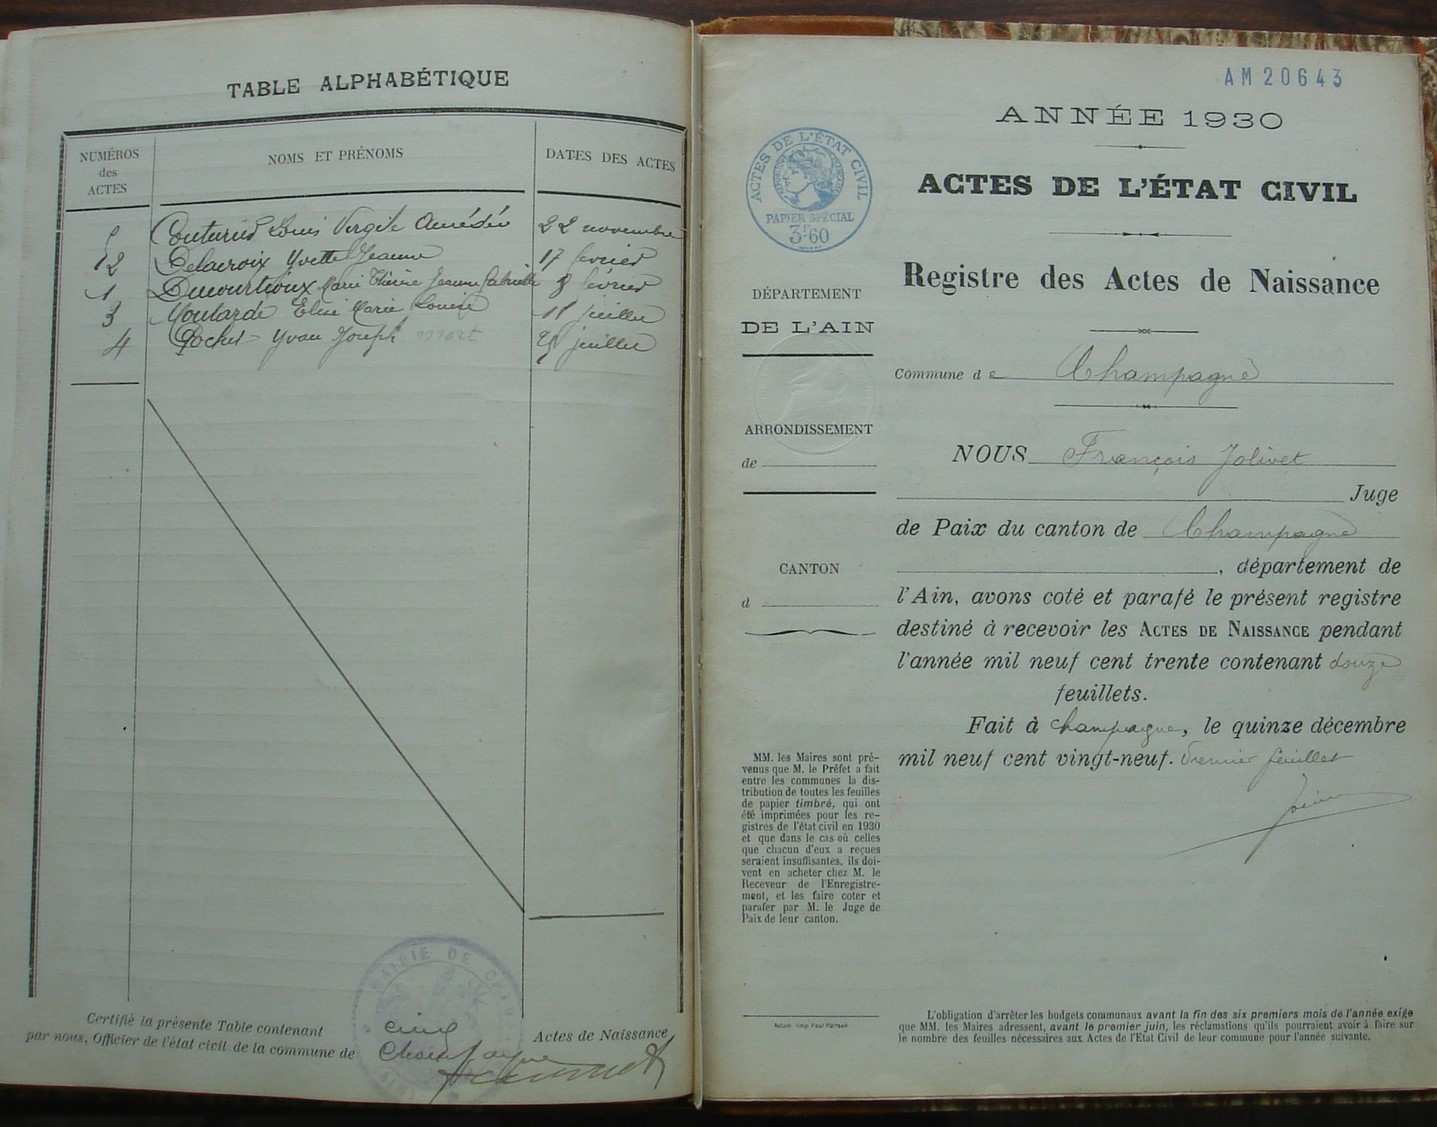 TABLE ALPHABÉTIQUE
NUMÉROS
des
ACTES
NOMS ET PRÉNOMS
DATES DES ACTES
5 Couturier Louis Virgile Amédée 22 novembre
2 Delacroix Yvette Jeanne 17 février
1 Ducourtioux Marie Thérèse Jeanne Gabrielle 8 février
3 Moutarde Marie Louise 11 juillet
4 Yvan Joseph juillet
MAIRIE DE
Certifié la présente Table contenant cinq Actes de Naissance
par nous, Officier de l'état civil de la commune de Champagne
AM20643
ANNÉE 1930
ACTES DE L'ÉTAT CIVIL
PAPIER SPÉCIAL
3F60
ACTES DE L'ÉTAT CIVIL
Registre des Actes de Naissance
DÉPARTEMENT
DE L'AIN
ARRONDISSEMENT
de
CANTON
d
Commune de Champagne
NOUS François Jolivet
Juge
de Paix du canton de Champagne
, département de
l'Ain, avons coté et parafé le présent registre
destiné à recevoir les ACTES DE NAISSANCE pendant
l'année mil neuf cent trente contenant douze
feuillets.
Fait à Champagne, le quinze décembre
mil neuf cent vingt-neuf. Premier feuillet
MM. les Maires sont pré-
venus que M. le Préfet a fait
entre les communes la dis-
tribution de toutes les feuilles
de papier timbré, qui ont
été imprimées pour les re-
gistres de l'état civil en 1930
et que dans le cas où celles
que chacun d'eux a reçues
seraient insuffisantes, ils doi-
vent en acheter chez M. le
Receveur de l'Enregistre-
ment, et les faire coter et
parafer par M. le Juge de
Paix de leur canton.
L'obligation d'arrêter les budgets communaux avant la fin des six premiers mois de l'année exige
que MM. les Maires adressent, avant le premier juin, les réclamations qu'ils pourraient avoir à faire sur
le nombre des feuilles nécessaires aux Actes de l'Etat Civil de leur commune pour l'année suivante.